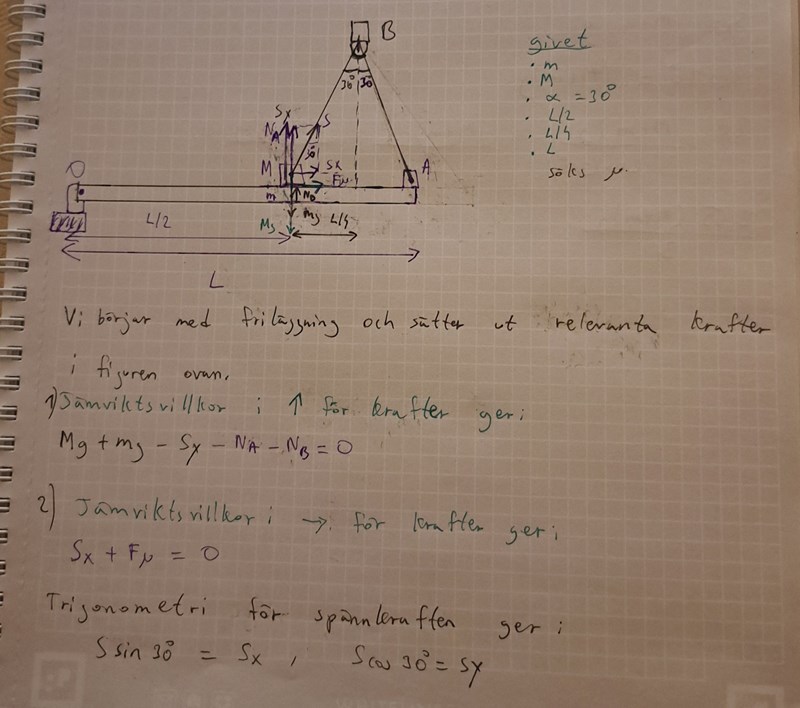 B
givet
• m
• M
• α = 30°
• L/2
• L/4
• L
söks μ
30° 30
Sx
NA
S
30
M
Sx
Fμ
A
O
m
NB
mg
Mg
L/2
L/4
L
Vi börjar med friläggning och sätter ut relevanta krafter
i figuren ovan.
1) Jämviktsvillkor i ↑ för krafter ger:
Mg + mg - Sy - NA - NB = 0
2) Jämviktsvillkor i → för krafter ger:
Sx + Fμ = 0
Trigonometri för spännkraften ger:
S sin 30° = Sx, S cos 30° = Sy